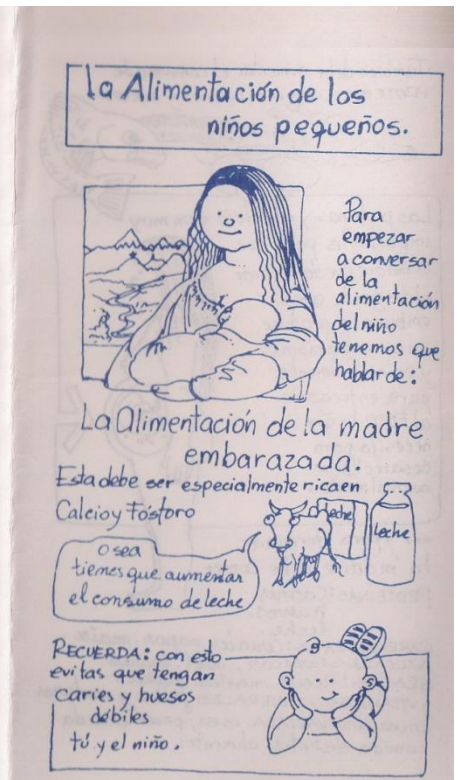 La Alimentación de los
niños pequeños.
Para
empezar
a conversar
de la
alimentación
del niño
tenemos que
hablar de:
La Alimentación de la madre
embarazada.
Esta debe ser especialmente rica en
Calcio y Fósforo
leche
leche
O sea
tienes que aumentar
el consumo de leche
RECUERDA: con esto
evitas que tengan
caries y huesos
débiles
tú y el niño.